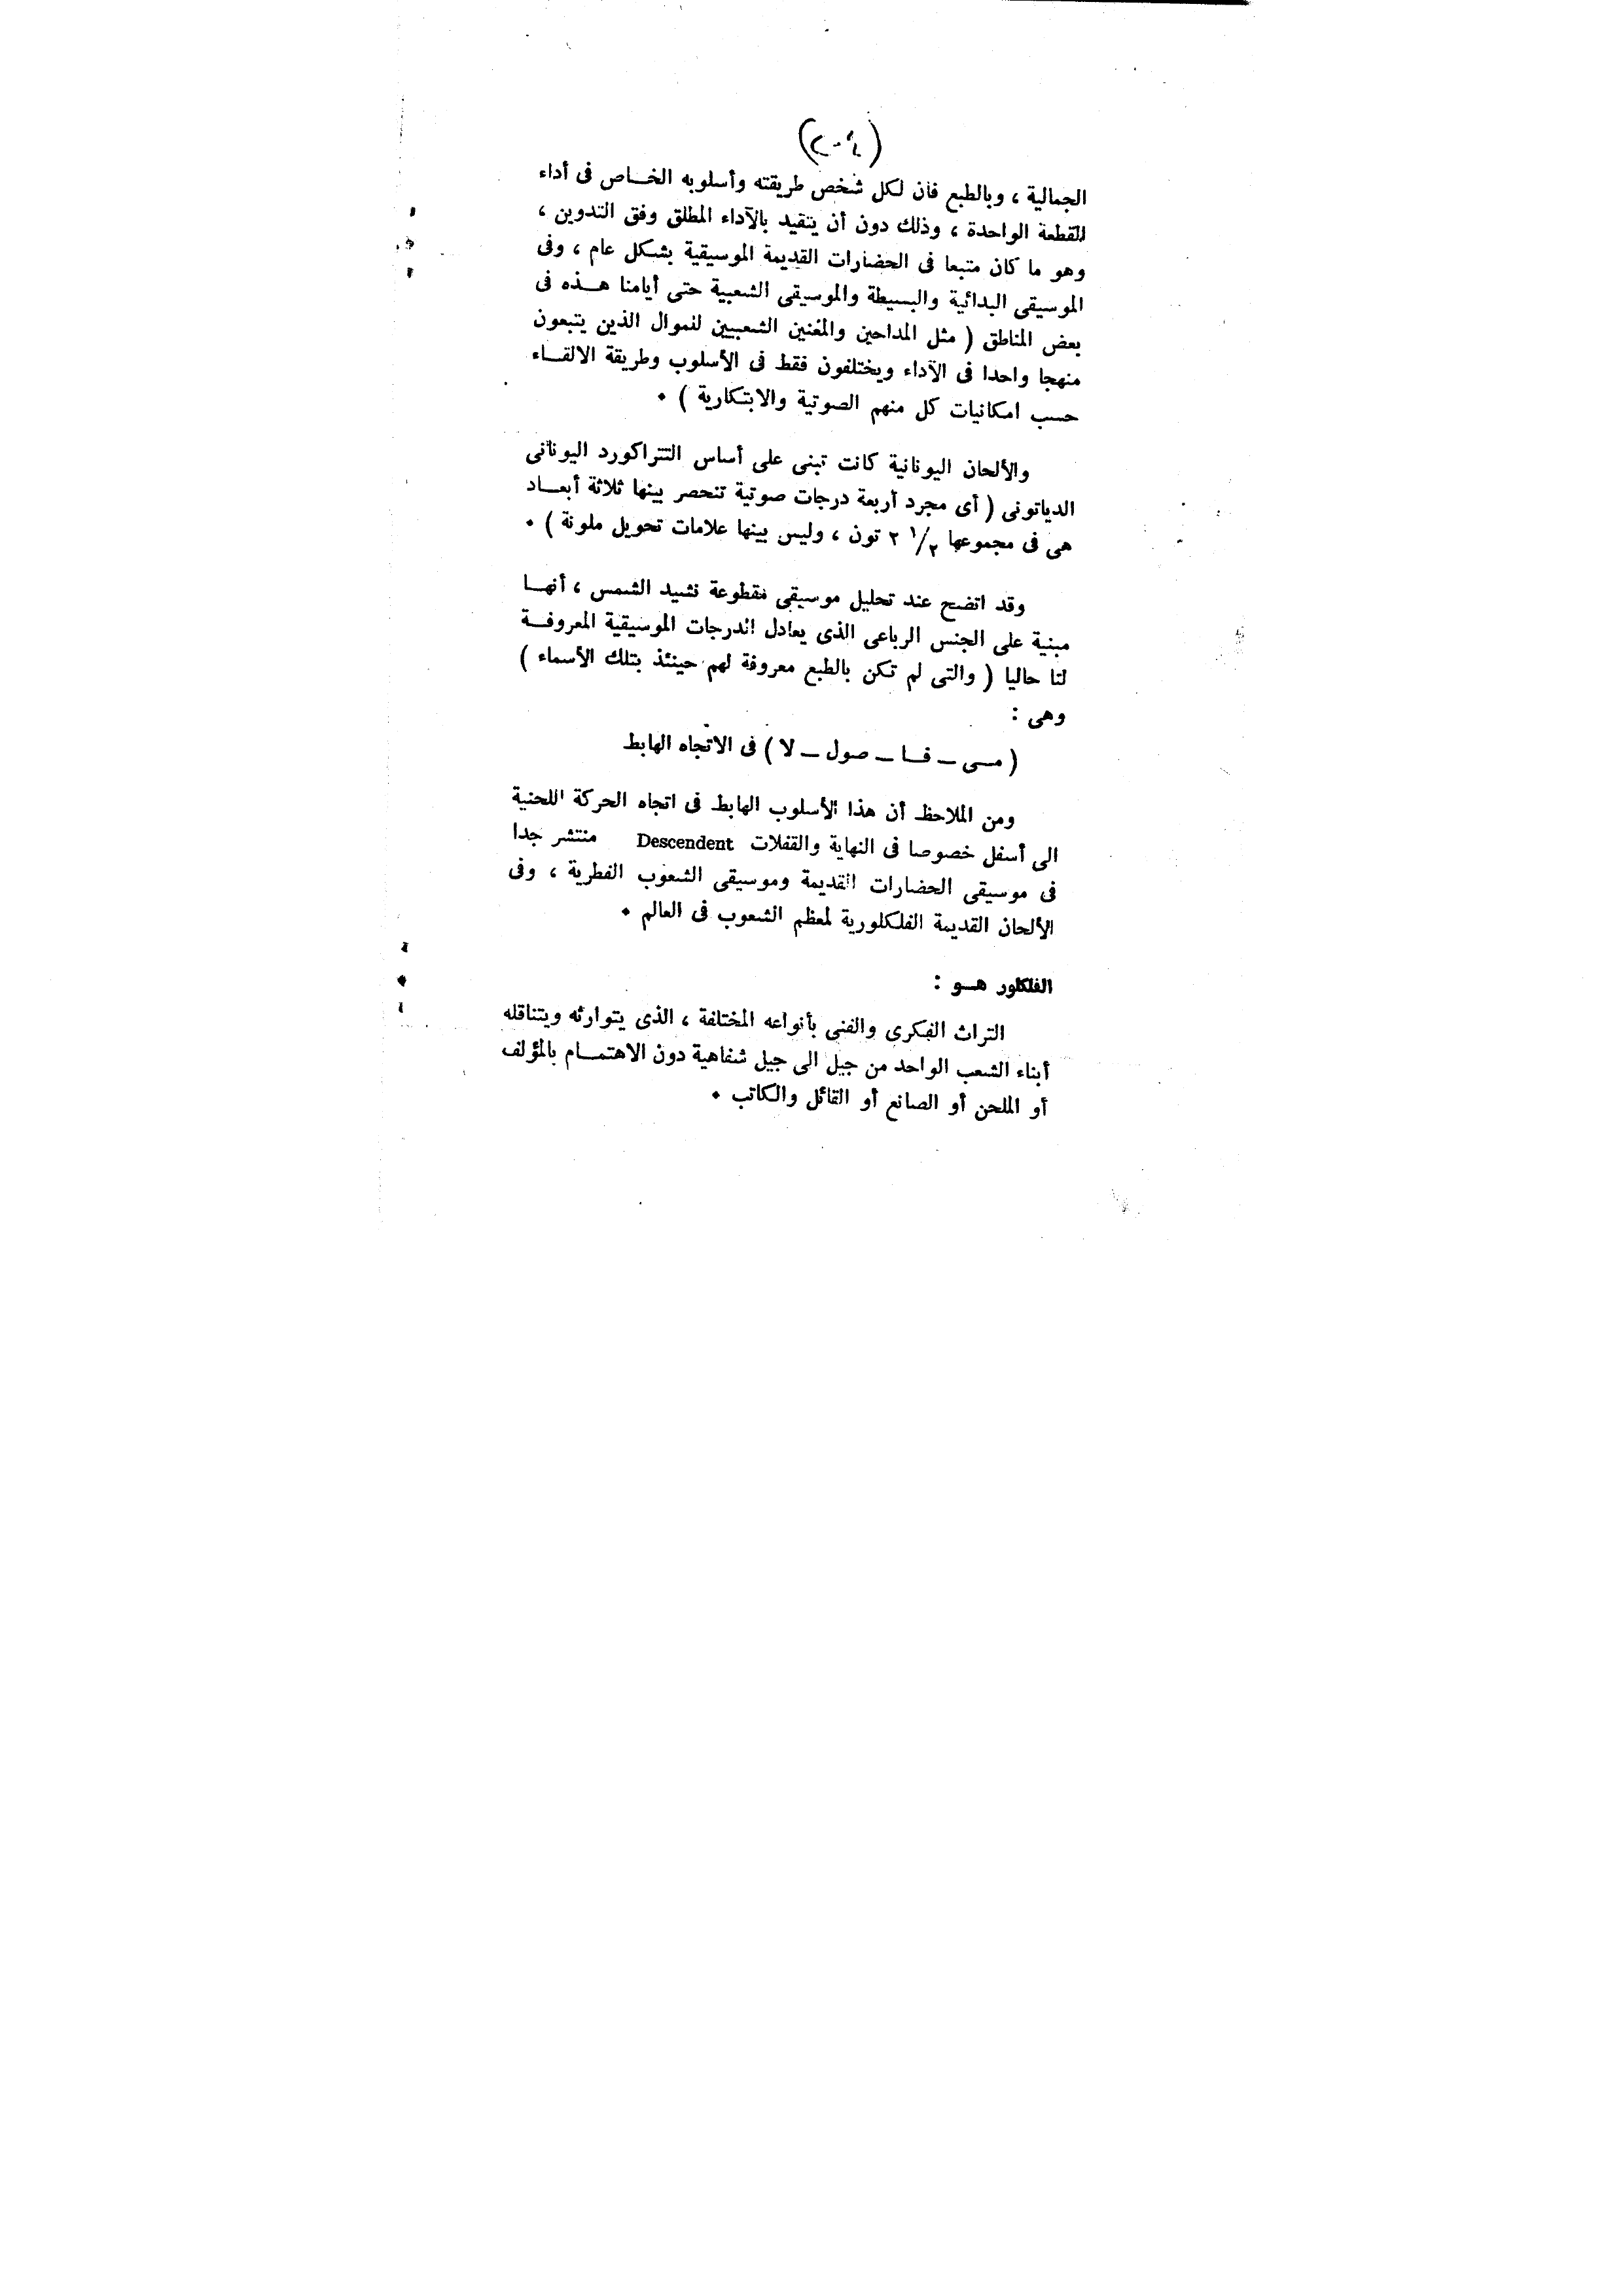 الجمالية ، وبالطبع فان لكل شخص طريقته وأسلوبه الخاص فى أداء
القطعة الواحدة ، وذلك دون أن يتقيد بالآداء المطلق وفق التدوين ،
وهو ما كان متبعا فى الحضارات القديمة الموسيقية بشكل عام ، وفى
الموسيقى البدائية والبسيطة والموسيقى الشعبية حتى أيامنا هذه فى
بعض المناطق ( مثل المداحين والمغنين الشعبيين للموال الذين يتبعون
منهجا واحدا فى الآداء ويختلفون فقط فى الأسلوب وطريقة الالقاء
حسب امكانيات كل منهم الصوتية والابتكارية ) ٠
والألحان اليونانية كانت تبنى على أساس التتراكورد اليونانى
الدياتونى ( أى مجرد أربعة درجات صوتية تنحصر بينها ثلاثة أبعاد
هى فى مجموعها ١/٢ ٢ تون ، وليس بينها علامات تحويل ملونة ) ٠
وقد اتضح عند تحليل موسيقى مقطوعة نشيد الشمس ، أنها
مبنية على الجنس الرباعى الذى يعادل الدرجات الموسيقية المعروفة
لنا حاليا ( والتى لم تكن بالطبع معروفة لهم حينئذ بتلك الأسماء )
وهى :
( مى ـ فا ـ صول ـ لا ) فى الاتجاه الهابط
ومن الملاحظ أن هذا الأسلوب الهابط فى اتجاه الحركة اللحنية
الى أسفل خصوصا فى النهاية والقفلات Descendent منتشر جدا
فى موسيقى الحضارات القديمة وموسيقى الشعوب الفطرية ، وفى
الألحان القديمة الفلكلورية لمعظم الشعوب فى العالم ٠
الفلكلور هو :
التراث الفكرى والفنى بأنواعه المختلفة ، الذى يتوارثه ويتناقله
أبناء الشعب الواحد من جيل الى جيل شفاهية دون الاهتمام بالمؤلف
أو الملحن أو الصانع أو القائل والكاتب ٠